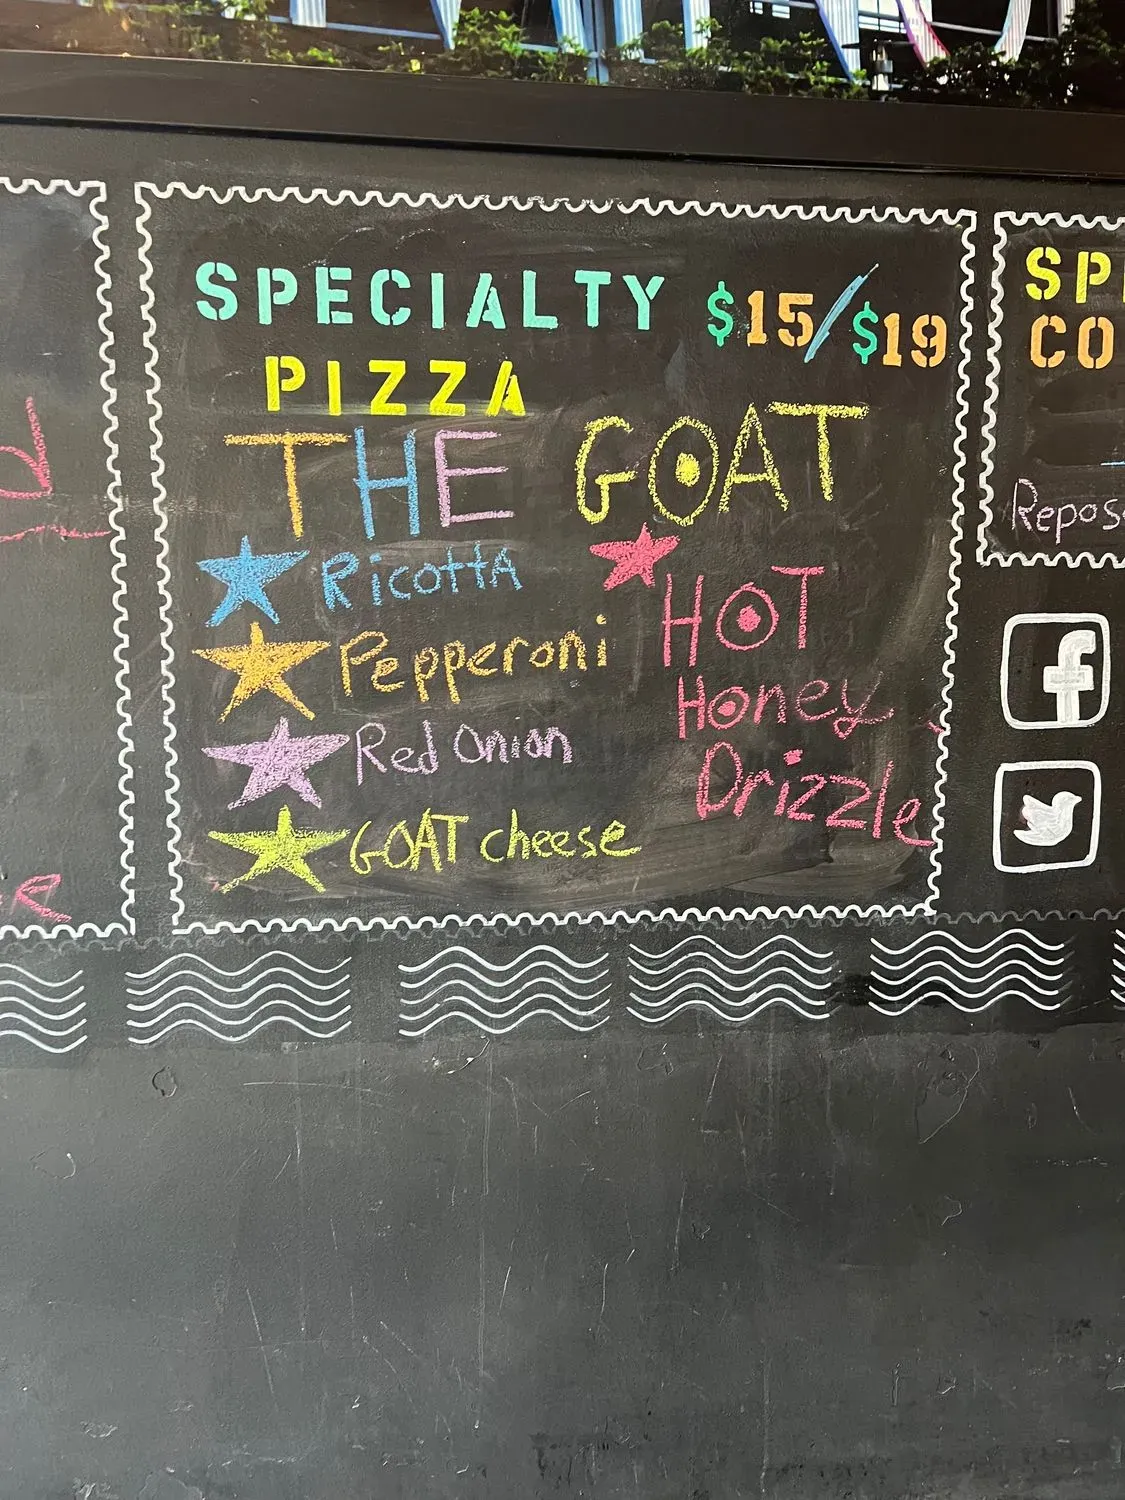 SPECIALTY $15/$19
PIZZA
THE GOAT
Ricotta
Pepperoni
Red Onion
GOAT cheese
HOT
Honey
Drizzle